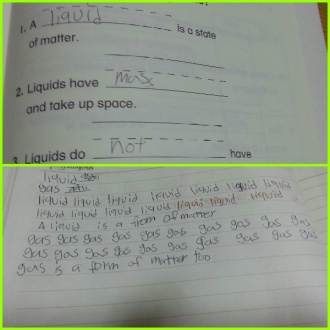 1. A liquid is a state
of matter.
2. Liquids have mas
and take up space.
3. Liquids do not have
liquid
gas
liquid liquid liquid liquid liquid liquid liquid
liquid liquid liquid liquid liquid liquid liquid
A liquid is a form of matter
gas gas gas gas gas gas gas gas gas gas gas
gas gas gas gas gas gas gas gas gas gas
gas is a form of matter too